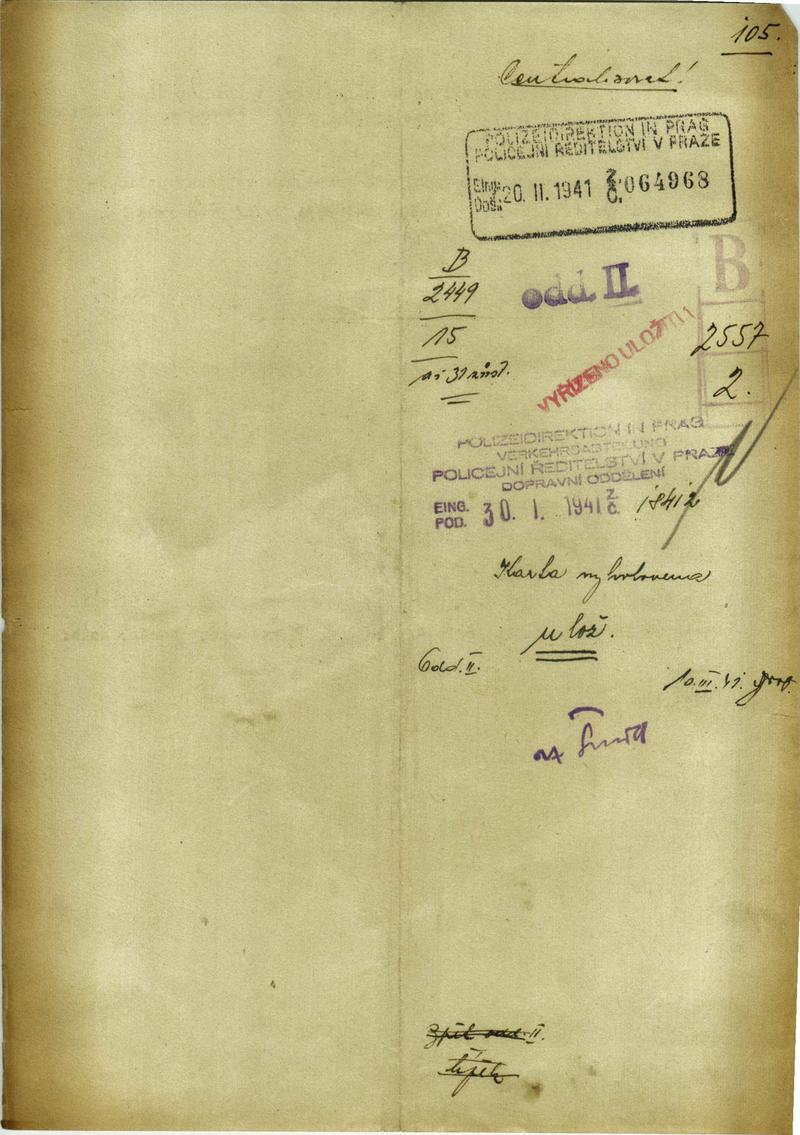 105.
Centralisovat!
POLIZEIDIREKTION IN PRAG
POLICEJNÍ ŘEDITELSTVÍ V PRAZE
Eing.
Došlo 20. II. 1941 Z. Č. 064968
B
2449
15
odd. II.
B
VYŘÍZENO ULOŽITI!
2557
2.
POLIZEIDIREKTION IN PRAG
VERKEHRSABTEILUNG
POLICEJNÍ ŘEDITELSTVÍ V PRAZE
DOPRAVNÍ ODDĚLENÍ
EING.
POD. 30. I. 1941 Z. Č. 18412
Karta vyhotovena
ulož.
Odd. II.
10.III.41.
Zpět odd. II.